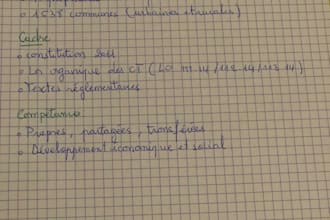 • 1538 communes (urbaines et rurales)
Cadre
• constitution 2011
• Loi organique des CT (LO 111.14 / 112.14 / 113.14)
• Textes réglementaires
Compétences
• Propres, partagées, transférées
• Développement économique et social